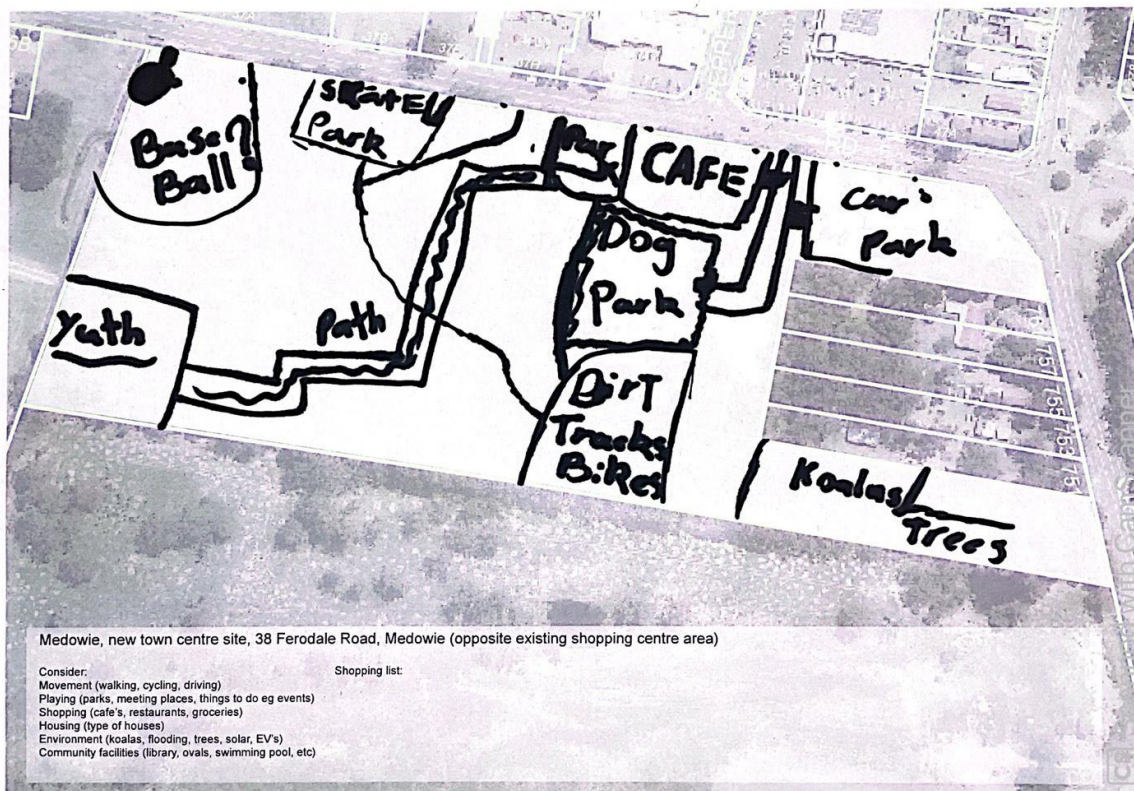 379
378
377
RD
Base?
Ball
SKATE
Park
Par
CAFE
Car's
Park
Dog
Park
Path
Yuth
Dirt
Tracks
Bikes
757 755 753 751
Koalas/
Trees
Medowie, new town centre site, 38 Ferodale Road, Medowie (opposite existing shopping centre area)
Consider:
Shopping list:
Movement (walking, cycling, driving)
Playing (parks, meeting places, things to do eg events)
Shopping (cafe's, restaurants, groceries)
Housing (type of houses)
Environment (koalas, flooding, trees, solar, EV's)
Community facilities (library, ovals, swimming pool, etc)